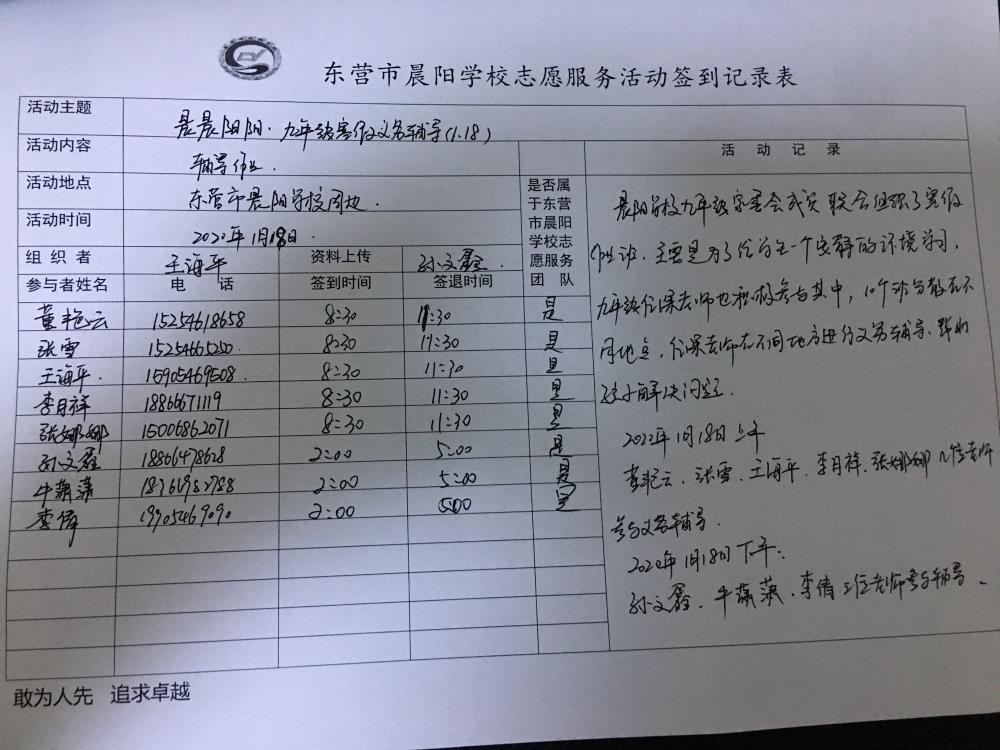 东营市晨阳学校志愿服务活动签到记录表
活动主题 晨晨阳阳·九年级寒假义务辅导(1.18)
活动内容 辅导作业.
活动地点 东营市晨阳学校周边.
活动时间 2020年1月18日.
组织者 王海平 资料上传 孙文鑫.
参与者姓名 电话 签到时间 签退时间 是否属于东营市晨阳学校志愿服务团队
董艳云 15254618658 8:30 11:30 是
张雪 15254665250. 8:30 11:30 是
王海平. 15905469508. 8:30 11:30 是
李月祥 18866671119 8:30 11:30 是
张娜娜 15006862071 8:30 11:30 是
孙文鑫 18806478628 2:00 5:00 是
牛潇潇 18361982788 2:00 5:00 是
李倩 19905469090 2:00 5:00 是
活动记录
晨阳学校九年级家委会成员联合组织了寒假
作业班.主要是为了给学生一个安静的环境学习,
九年级任课老师也积极参与其中,10个班分散在不
同地点,任课老师在不同地方进行义务辅导、帮助
孩子解决问题.
2020年1月18日上午
董艳云、张雪、王海平、李月祥、张娜娜几位老师
参与义务辅导.
2020年1月18日下午.
孙文鑫、牛潇潇、李倩三位老师参与辅导.
敢为人先 追求卓越